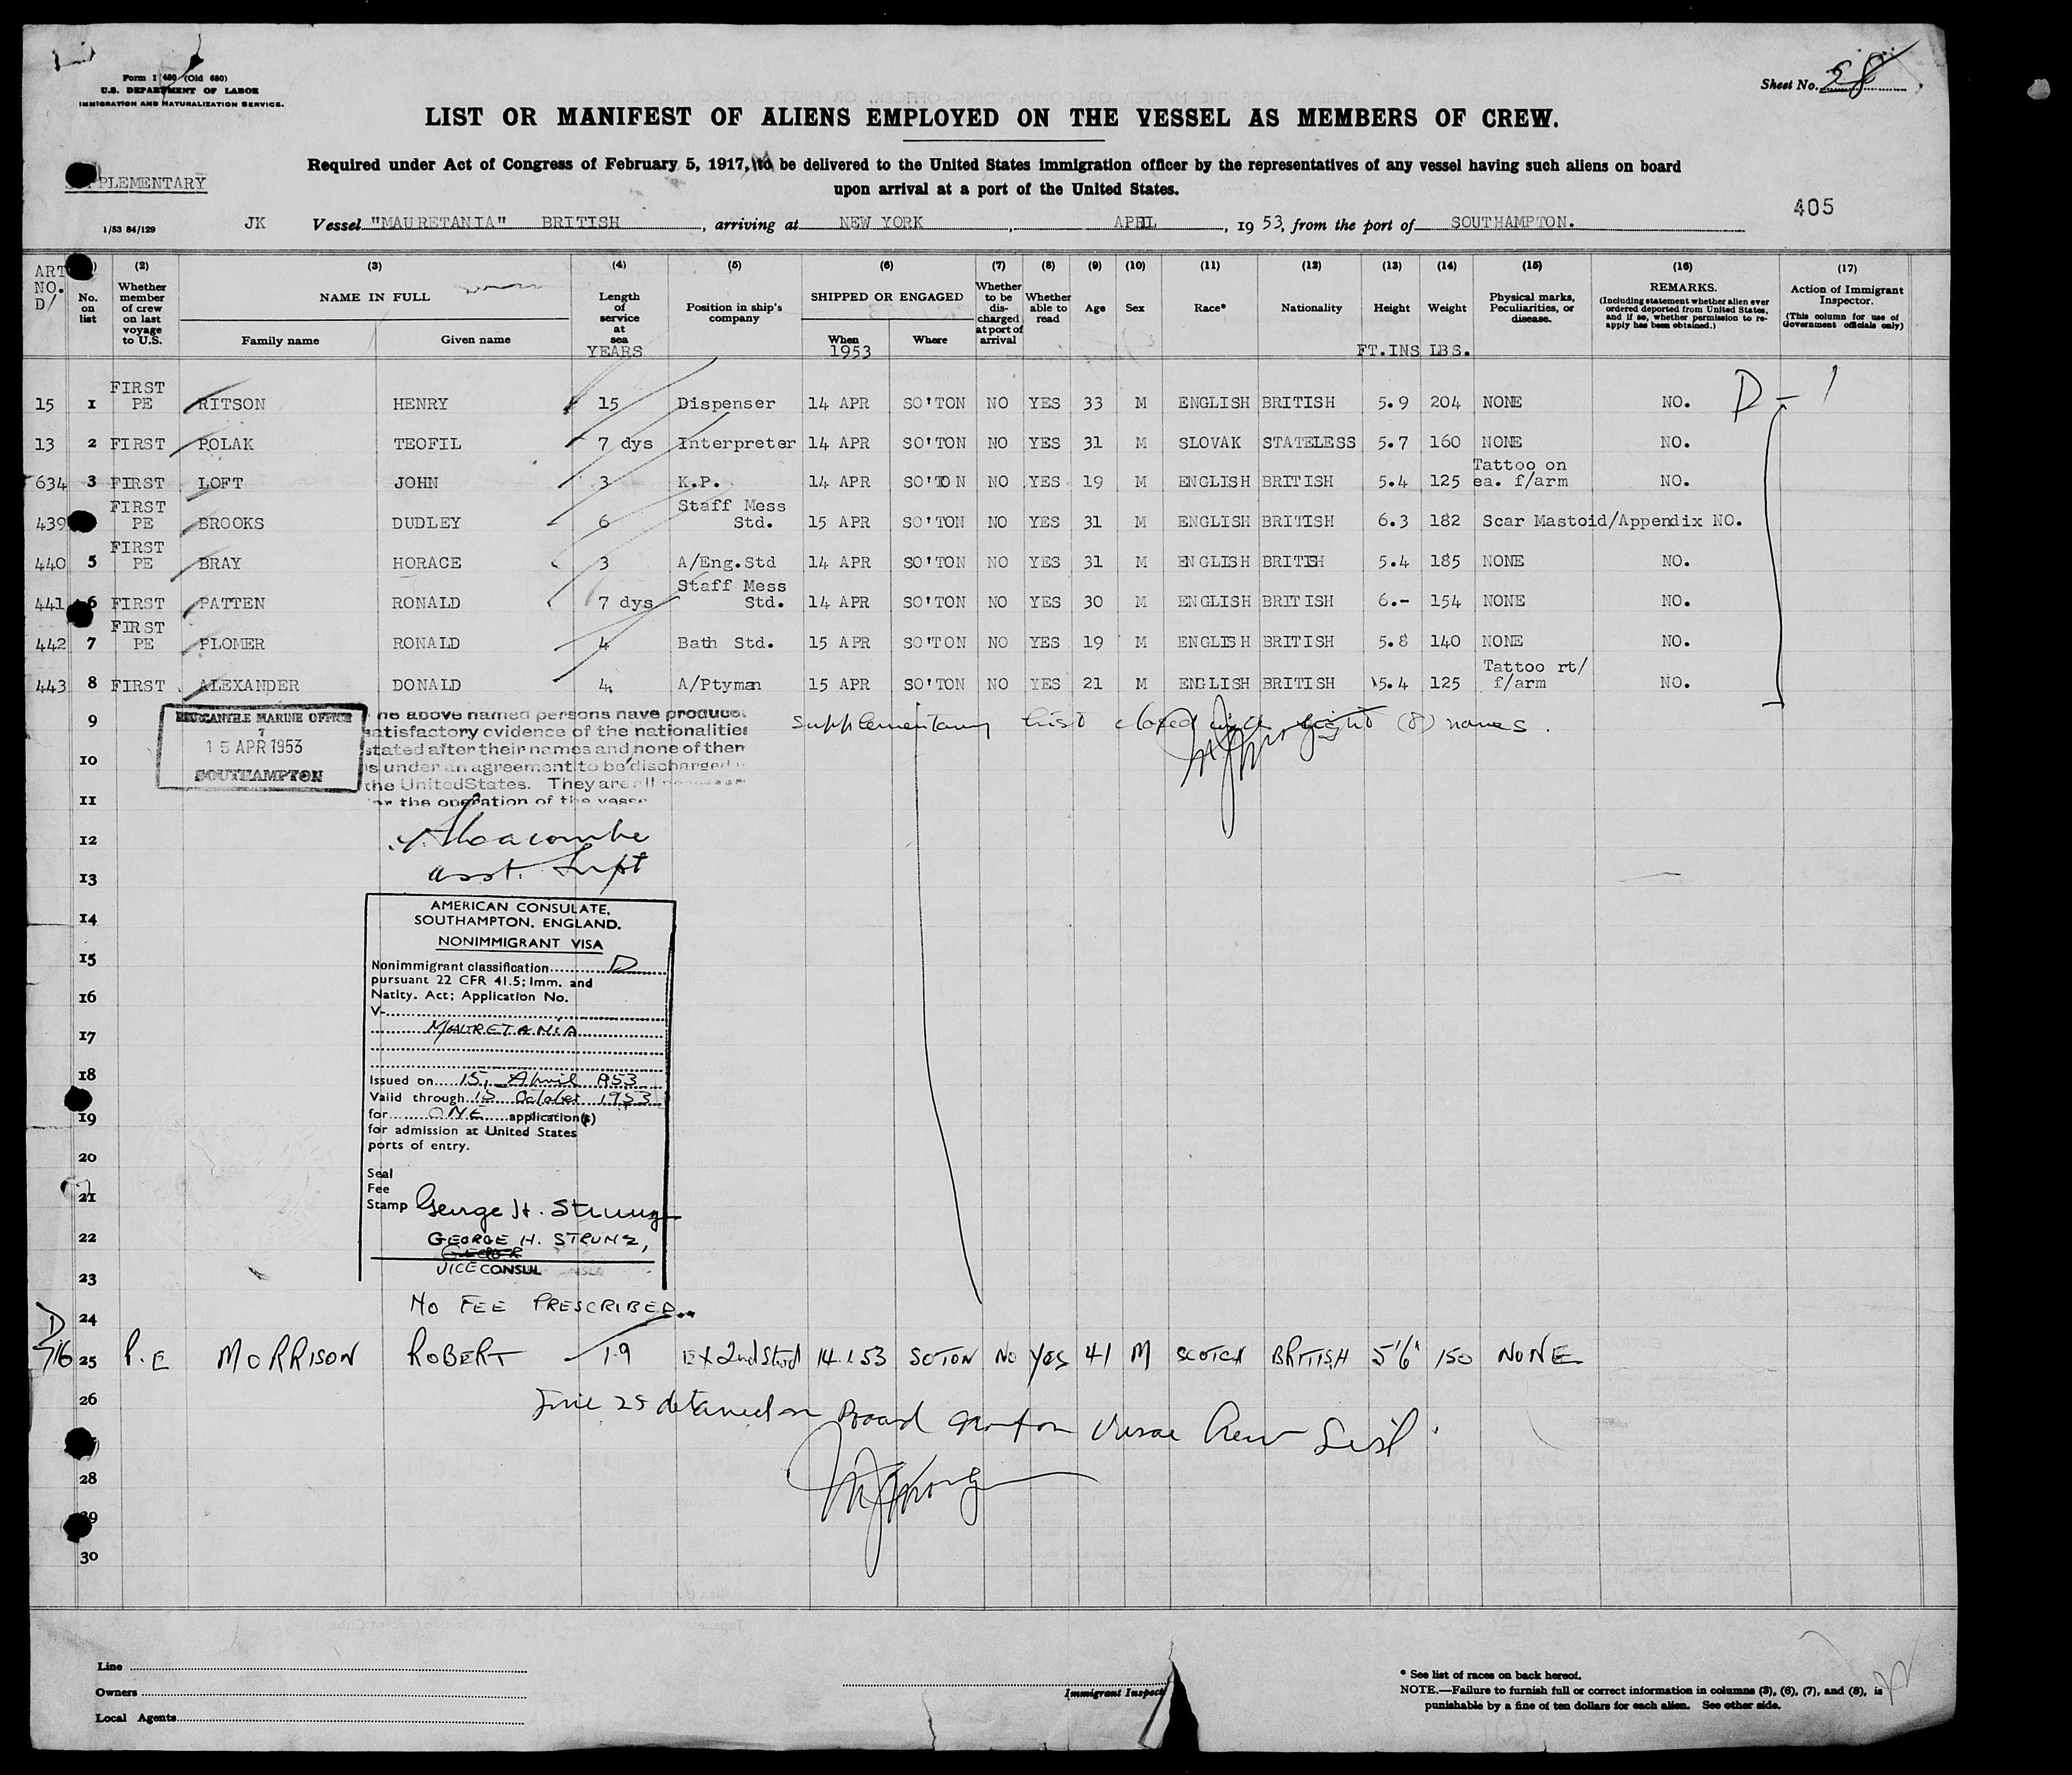 Form I 480 (Old 680)
U.S. DEPARTMENT OF LABOR
IMMIGRATION AND NATURALIZATION SERVICE.
Sheet No.
LIST OR MANIFEST OF ALIENS EMPLOYED ON THE VESSEL AS MEMBERS OF CREW.
Required under Act of Congress of February 5, 1917, to be delivered to the United States immigration officer by the representatives of any vessel having such aliens on board
upon arrival at a port of the United States.
PLEMENTARY
405
1/53 84/129 JK Vessel "MAURETANIA" BRITISH, arriving at NEW YORK, APRIL, 1953, from the port of SOUTHAMPTON.
ART NO. D/
No. on list
(2) Whether member of crew on last voyage to U.S.
(3) NAME IN FULL
Family name Given name
(4) Length of service at sea YEARS
(5) Position in ship's company
(6) SHIPPED OR ENGAGED
When 1953 Where
(7) Whether to be discharged at port of arrival
(8) Whether able to read
(9) Age
(10) Sex
(11) Race*
(12) Nationality
(13) Height FT.INS
(14) Weight LBS.
(15) Physical marks, Peculiarities, or disease.
(16) REMARKS. (Including statement whether alien ever ordered deported from United States, and if so, whether permission to re-apply has been obtained.)
(17) Action of Immigrant Inspector. (This column for use of Government officials only)
15 1 FIRST PE RITSON HENRY 15 Dispenser 14 APR SO'TON NO YES 33 M ENGLISH BRITISH 5.9 204 NONE NO. D - 1
13 2 FIRST POLAK TEOFIL 7 dys Interpreter 14 APR SO'TON NO YES 31 M SLOVAK STATELESS 5.7 160 NONE NO.
634 3 FIRST LOFT JOHN 3 K.P. 14 APR SO'TON NO YES 19 M ENGLISH BRITISH 5.4 125 Tattoo on ea. f/arm NO.
439 FIRST PE BROOKS DUDLEY 6 Staff Mess Std. 15 APR SO'TON NO YES 31 M ENGLISH BRITISH 6.3 182 Scar Mastoid/Appendix NO.
440 5 FIRST PE BRAY HORACE 3 A/Eng.Std 14 APR SO'TON NO YES 31 M ENGLISH BRITISH 5.4 185 NONE NO.
441 6 FIRST PATTEN RONALD 7 dys Staff Mess Std. 14 APR SO'TON NO YES 30 M ENGLISH BRITISH 6.- 154 NONE NO.
442 7 FIRST PE PLOMER RONALD 4 Bath Std. 15 APR SO'TON NO YES 19 M ENGLISH BRITISH 5.8 140 NONE NO.
443 8 FIRST ALEXANDER DONALD 4 A/Ptyman 15 APR SO'TON NO YES 21 M ENGLISH BRITISH 5.4 125 Tattoo rt/ f/arm NO.
9 Supplementary list closed with eight (8) names.
MERCANTILE MARINE OFFICE
7
15 APR 1953
SOUTHAMPTON
he above named persons have produced
satisfactory evidence of the nationalities
stated after their names and none of them
is under an agreement to be discharged
the United States. They are all necessary
for the operation of the vessel
10
11
12
asst. Supt
13
AMERICAN CONSULATE,
SOUTHAMPTON, ENGLAND.
NONIMMIGRANT VISA
Nonimmigrant classification D
pursuant 22 CFR 41.5; Imm. and
Natlty. Act; Application No.
V-
MAURETANIA
Issued on 15, April 1953
Valid through 15 October 1953
for ONE application(s)
for admission at United States
ports of entry.
Seal
Fee
Stamp George H. Strunz
GEORGE H. STRUNZ,
VICE CONSUL
14
15
16
17
18
19
20
21
22
23
NO FEE PRESCRIBED
24
D 716 25 P.E MORRISON ROBERT 19 EX 2nd Stwd 14.1.53 SOTON NO YES 41 M SCOTCH BRITISH 5'6" 150 NONE
26 Line 25 detained on Board Crew List
28
29
30
Line
Owners
Local Agents
Immigrant Inspect
* See list of races on back hereof.
NOTE.—Failure to furnish full or correct information in columns (3), (6), (7), and (8), is
punishable by a fine of ten dollars for each alien. See other side.